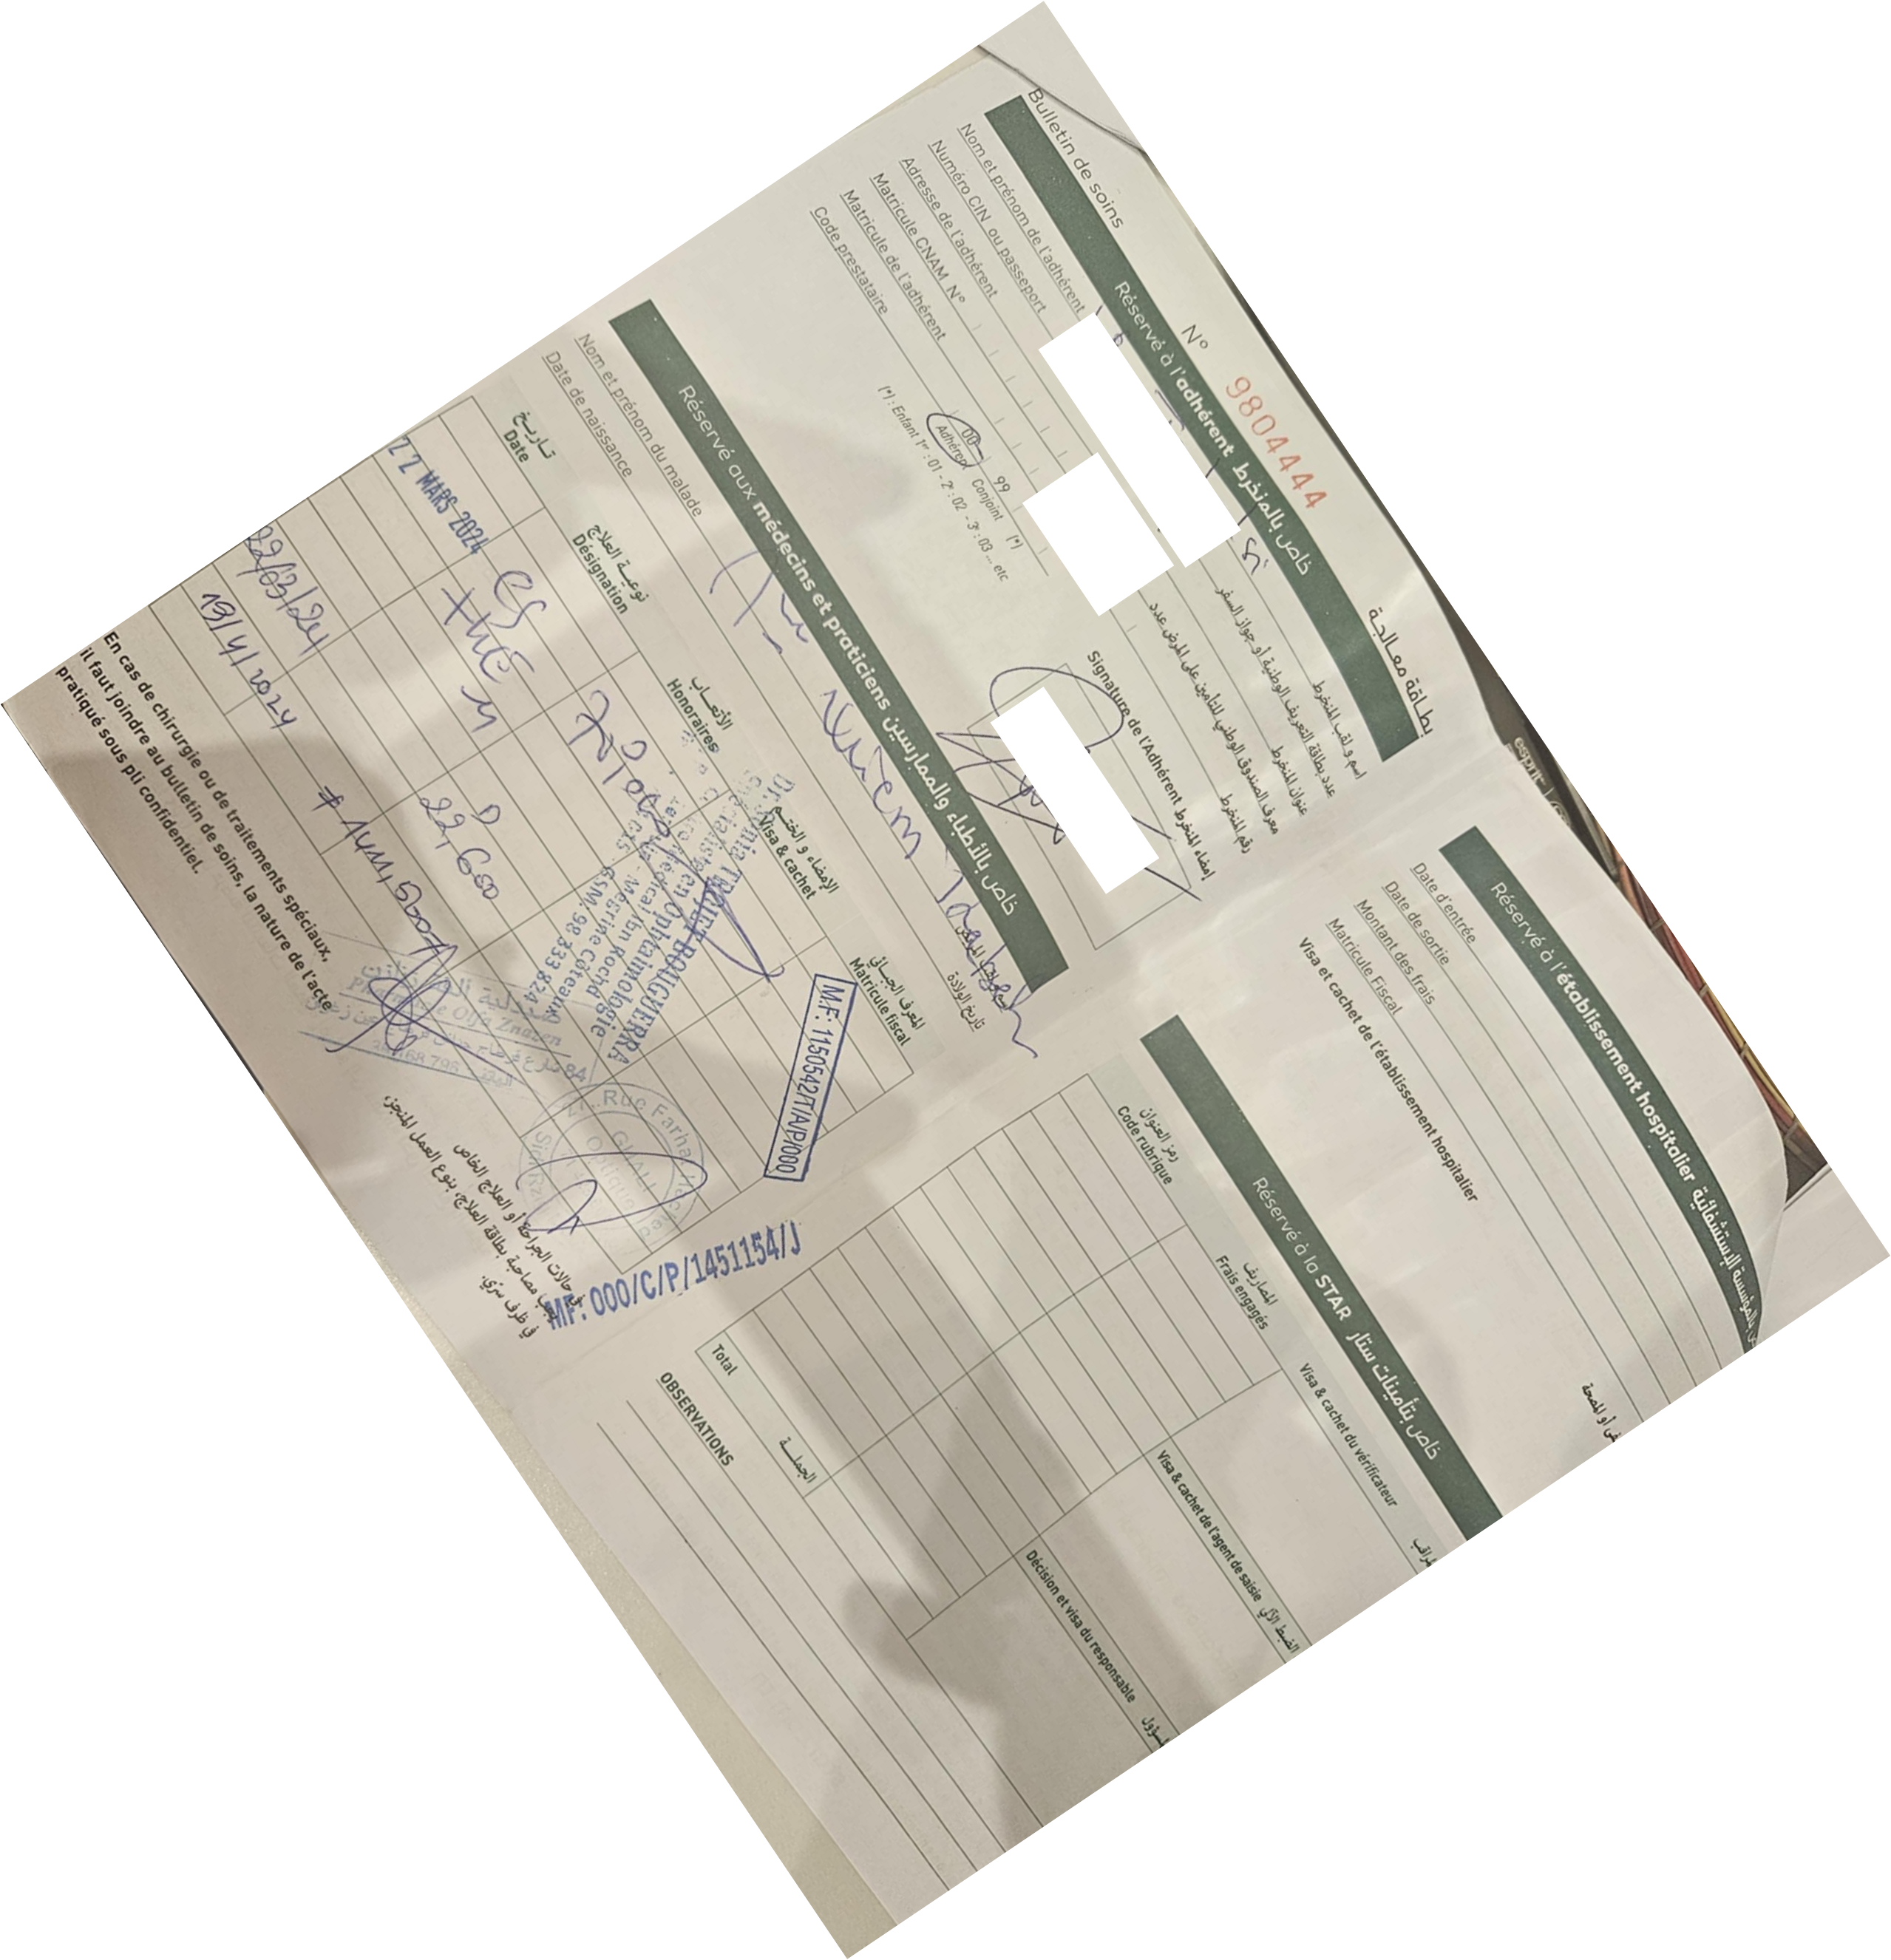 Bulletin de soins
N° 9804444
بطاقة معالجة
Réservé à l'adhérent خاص بالمنخرط
Nom et prénom de l'adhérent
اسم و لقب المنخرط
Numéro CIN ou passeport
عدد بطاقة التعريف الوطنية أو جواز السفر
Adresse de l'adhérent
عنوان المنخرط
Matricule CNAM N°
معرف الصندوق الوطني للتأمين على المرض عدد
Matricule de l'adhérent
رقم المنخرط
Code prestataire
00 99
Adhérent Conjoint (*)
(*) : Enfant 1er : 01 - 2e : 02 - 3e : 03 ... etc
Signature de l'Adhérent إمضاء المنخرط
Réservé aux médecins et praticiens خاص بالأطباء والممارسين
Nom et prénom du malade
Date de naissance
تاريخ الولادة
تاريخ
Date
نوعية العلاج
Désignation
الأتعاب
Honoraires
الإمضاء و الختم
Visa & cachet
المعرف الجبائي
Matricule fiscal
22 MARS 2024
Dr. Sonia TRIGUI BOUGUERRA
Spécialiste en Ophtalmologie
Médical Ibn Rochd
Mégrine Côteaux
GSM: 98 333 824
M.F: 1150542/T/A/P/000
22,600
22/03/24
Rue Farhat Hached
19/4/2024
Pharmacie Olfa Znazen
MF: 000/C/P/1451154/J
En cas de chirurgie ou de traitements spéciaux,
il faut joindre au bulletin de soins, la nature de l'acte
pratiqué sous pli confidentiel.
في حالات الجراحة أو العلاج الخاص
يجب مصاحبة بطاقة العلاج، بنوع العمل المنجز،
في ظرف سري.
Réservé à l'établissement hospitalier
Date d'entrée
Date de sortie
Montant des frais
Matricule Fiscal
Visa et cachet de l'établissement hospitalier
Réservé à la STAR خاص بتأمينات ستار
رمز العنوان
Code rubrique
المصاريف
Frais engagés
Visa & cachet du vérificateur
Visa & cachet de l'agent de saisie
Décision et visa du responsable
Total الجملة
OBSERVATIONS